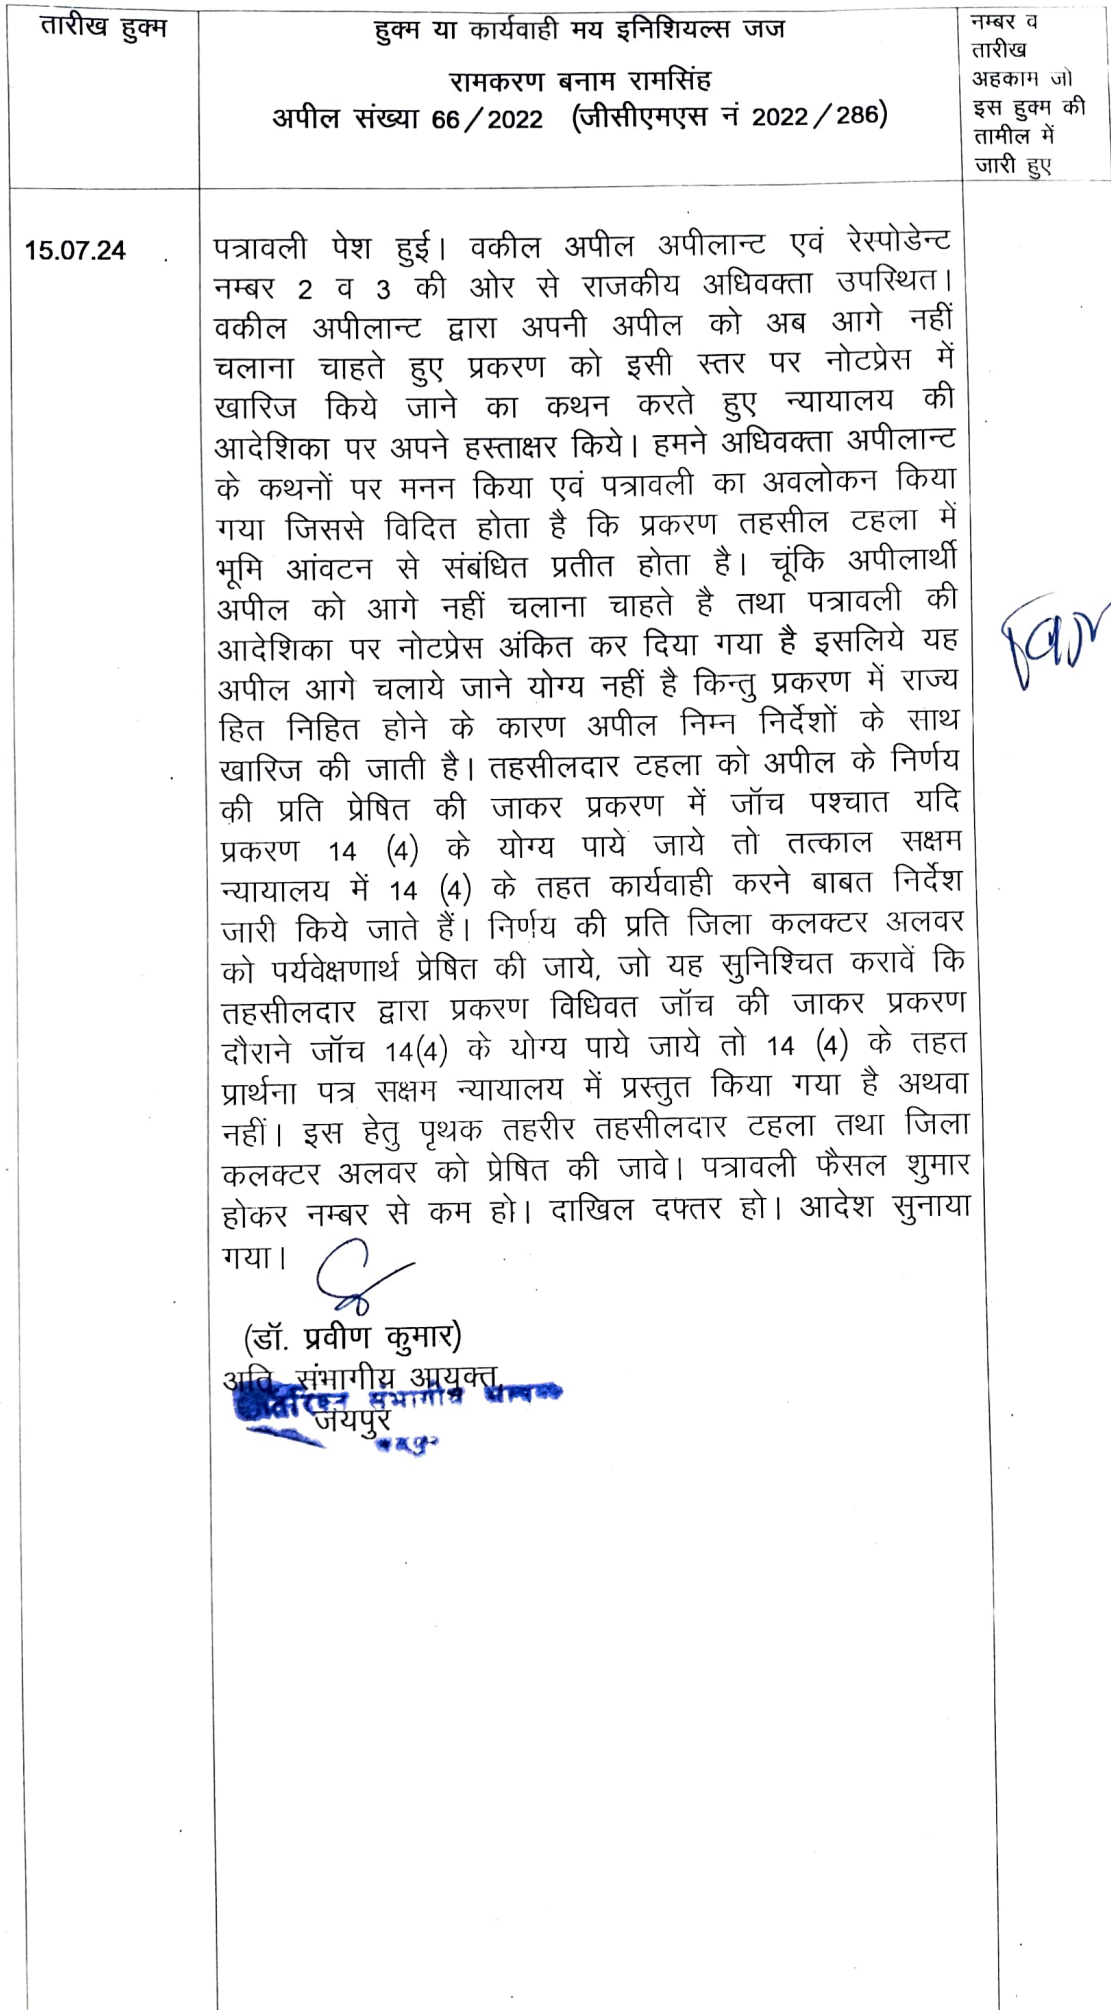 तारीख हुक्म
हुक्म या कार्यवाही मय इनिशियल्स जज
रामकरण बनाम रामसिंह
अपील संख्या 66/2022 (जीसीएमएस नं 2022/286)
नम्बर व
तारीख
अहकाम जो
इस हुक्म की
तामील में
जारी हुए
15.07.24
पत्रावली पेश हुई। वकील अपील अपीलान्ट एवं रेस्पोडेन्ट
नम्बर 2 व 3 की ओर से राजकीय अधिवक्ता उपस्थित।
वकील अपीलान्ट द्वारा अपनी अपील को अब आगे नहीं
चलाना चाहते हुए प्रकरण को इसी स्तर पर नोटप्रेस में
खारिज किये जाने का कथन करते हुए न्यायालय की
आदेशिका पर अपने हस्ताक्षर किये। हमने अधिवक्ता अपीलान्ट
के कथनों पर मनन किया एवं पत्रावली का अवलोकन किया
गया जिससे विदित होता है कि प्रकरण तहसील टहला में
भूमि आंवटन से संबंधित प्रतीत होता है। चूंकि अपीलार्थी
अपील को आगे नहीं चलाना चाहते है तथा पत्रावली की
आदेशिका पर नोटप्रेस अंकित कर दिया गया है इसलिये यह
अपील आगे चलाये जाने योग्य नहीं है किन्तु प्रकरण में राज्य
हित निहित होने के कारण अपील निम्न निर्देशों के साथ
खारिज की जाती है। तहसीलदार टहला को अपील के निर्णय
की प्रति प्रेषित की जाकर प्रकरण में जॉच पश्चात यदि
प्रकरण 14 (4) के योग्य पाये जाये तो तत्काल सक्षम
न्यायालय में 14 (4) के तहत कार्यवाही करने बाबत निर्देश
जारी किये जाते हैं। निर्णय की प्रति जिला कलक्टर अलवर
को पर्यवेक्षणार्थ प्रेषित की जाये, जो यह सुनिश्चित करावें कि
तहसीलदार द्वारा प्रकरण विधिवत जॉच की जाकर प्रकरण
दौराने जॉच 14(4) के योग्य पाये जाये तो 14 (4) के तहत
प्रार्थना पत्र सक्षम न्यायालय में प्रस्तुत किया गया है अथवा
नहीं। इस हेतु पृथक तहरीर तहसीलदार टहला तथा जिला
कलक्टर अलवर को प्रेषित की जावे। पत्रावली फैसल शुमार
होकर नम्बर से कम हो। दाखिल दफ्तर हो। आदेश सुनाया
गया।
(डॉ. प्रवीण कुमार)
अति. संभागीय आयुक्त,
जयपुर